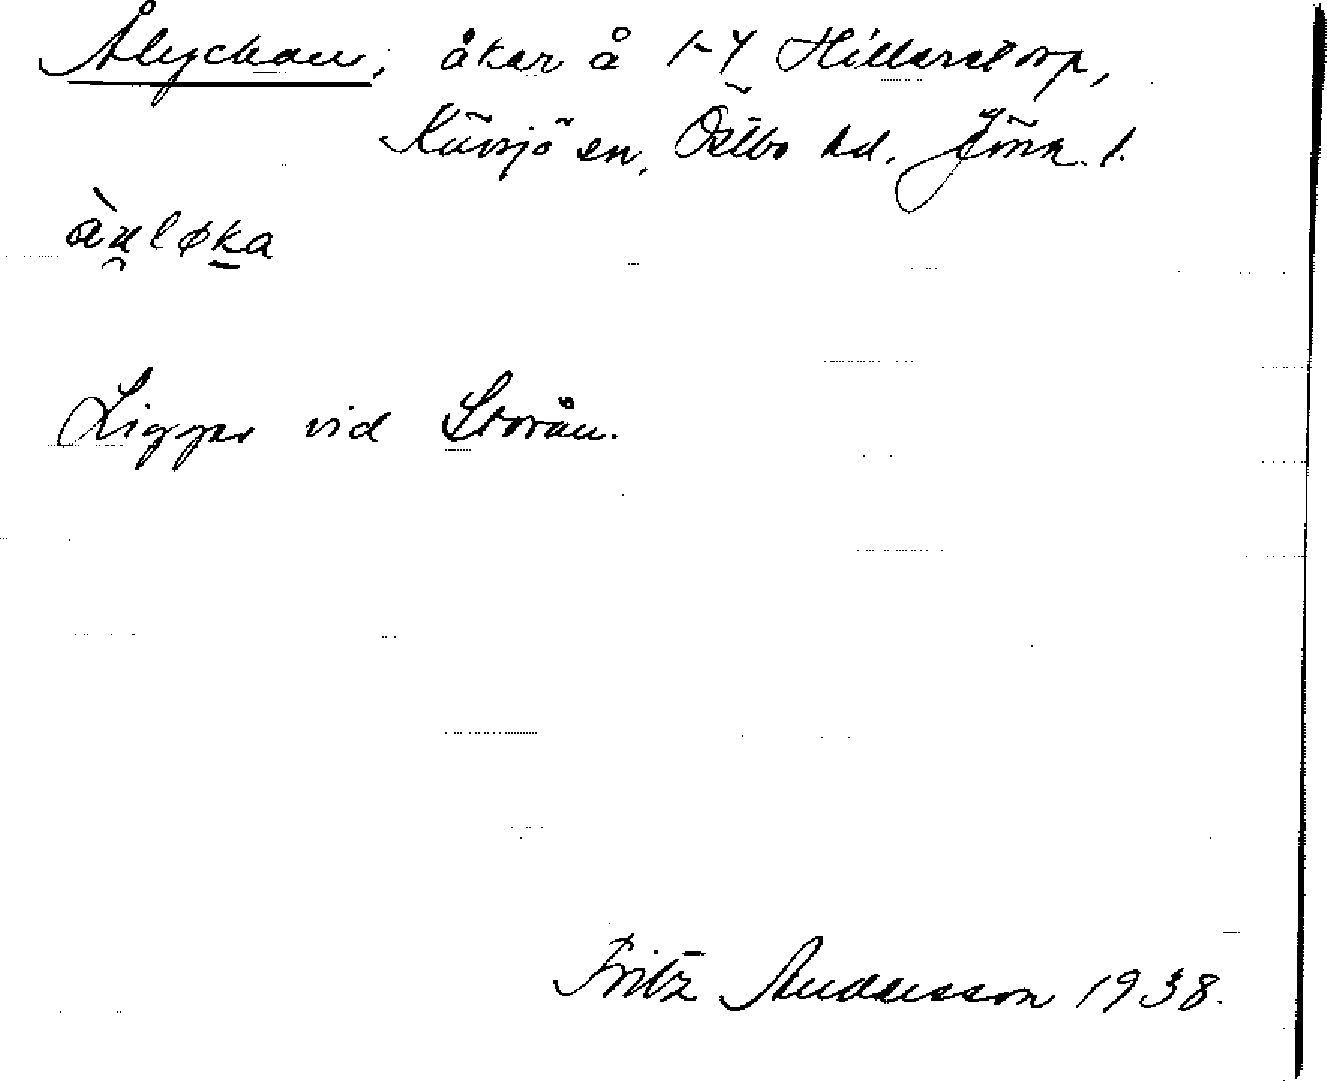 Ålyckan, åkar å 1-4 Hillerstorp,
Kävsjö sn, Östbo hd. Jönk. l.
Ligger vid Storån.
Fritz Andersson 1938.